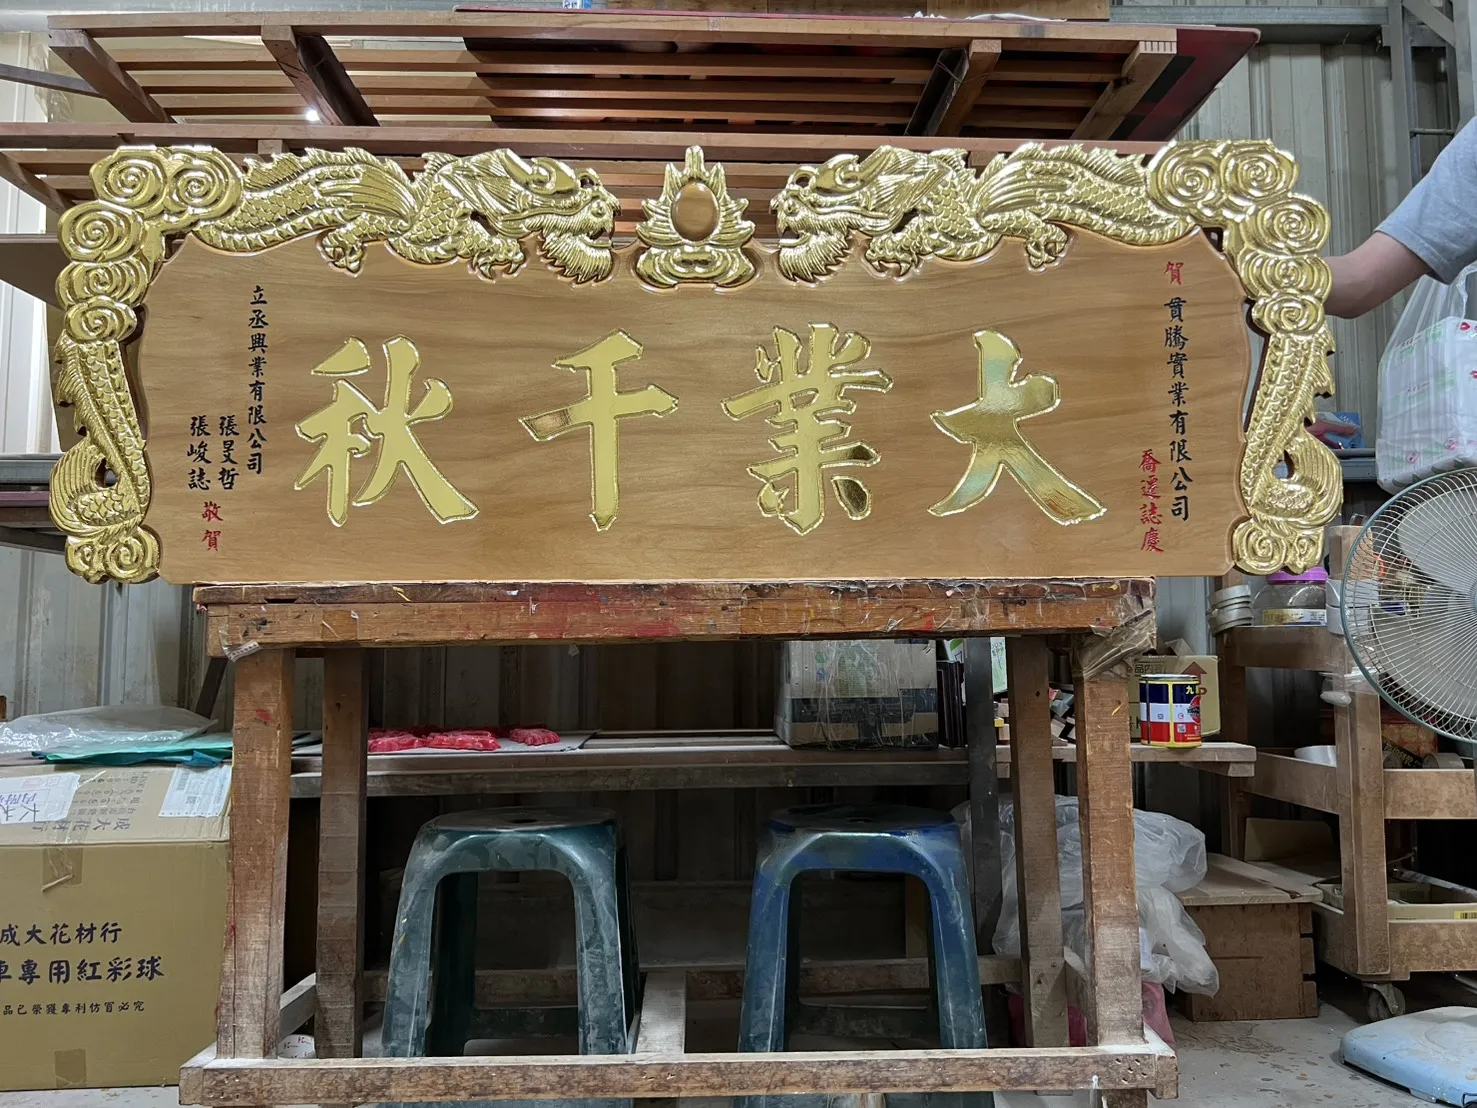 賀
貫騰實業有限公司
喬遷誌慶
大業千秋
立丞興業有限公司
張旻哲
張峻誌
敬賀
成大花材行
車專用紅彩球
品已榮獲專利仿冒必究